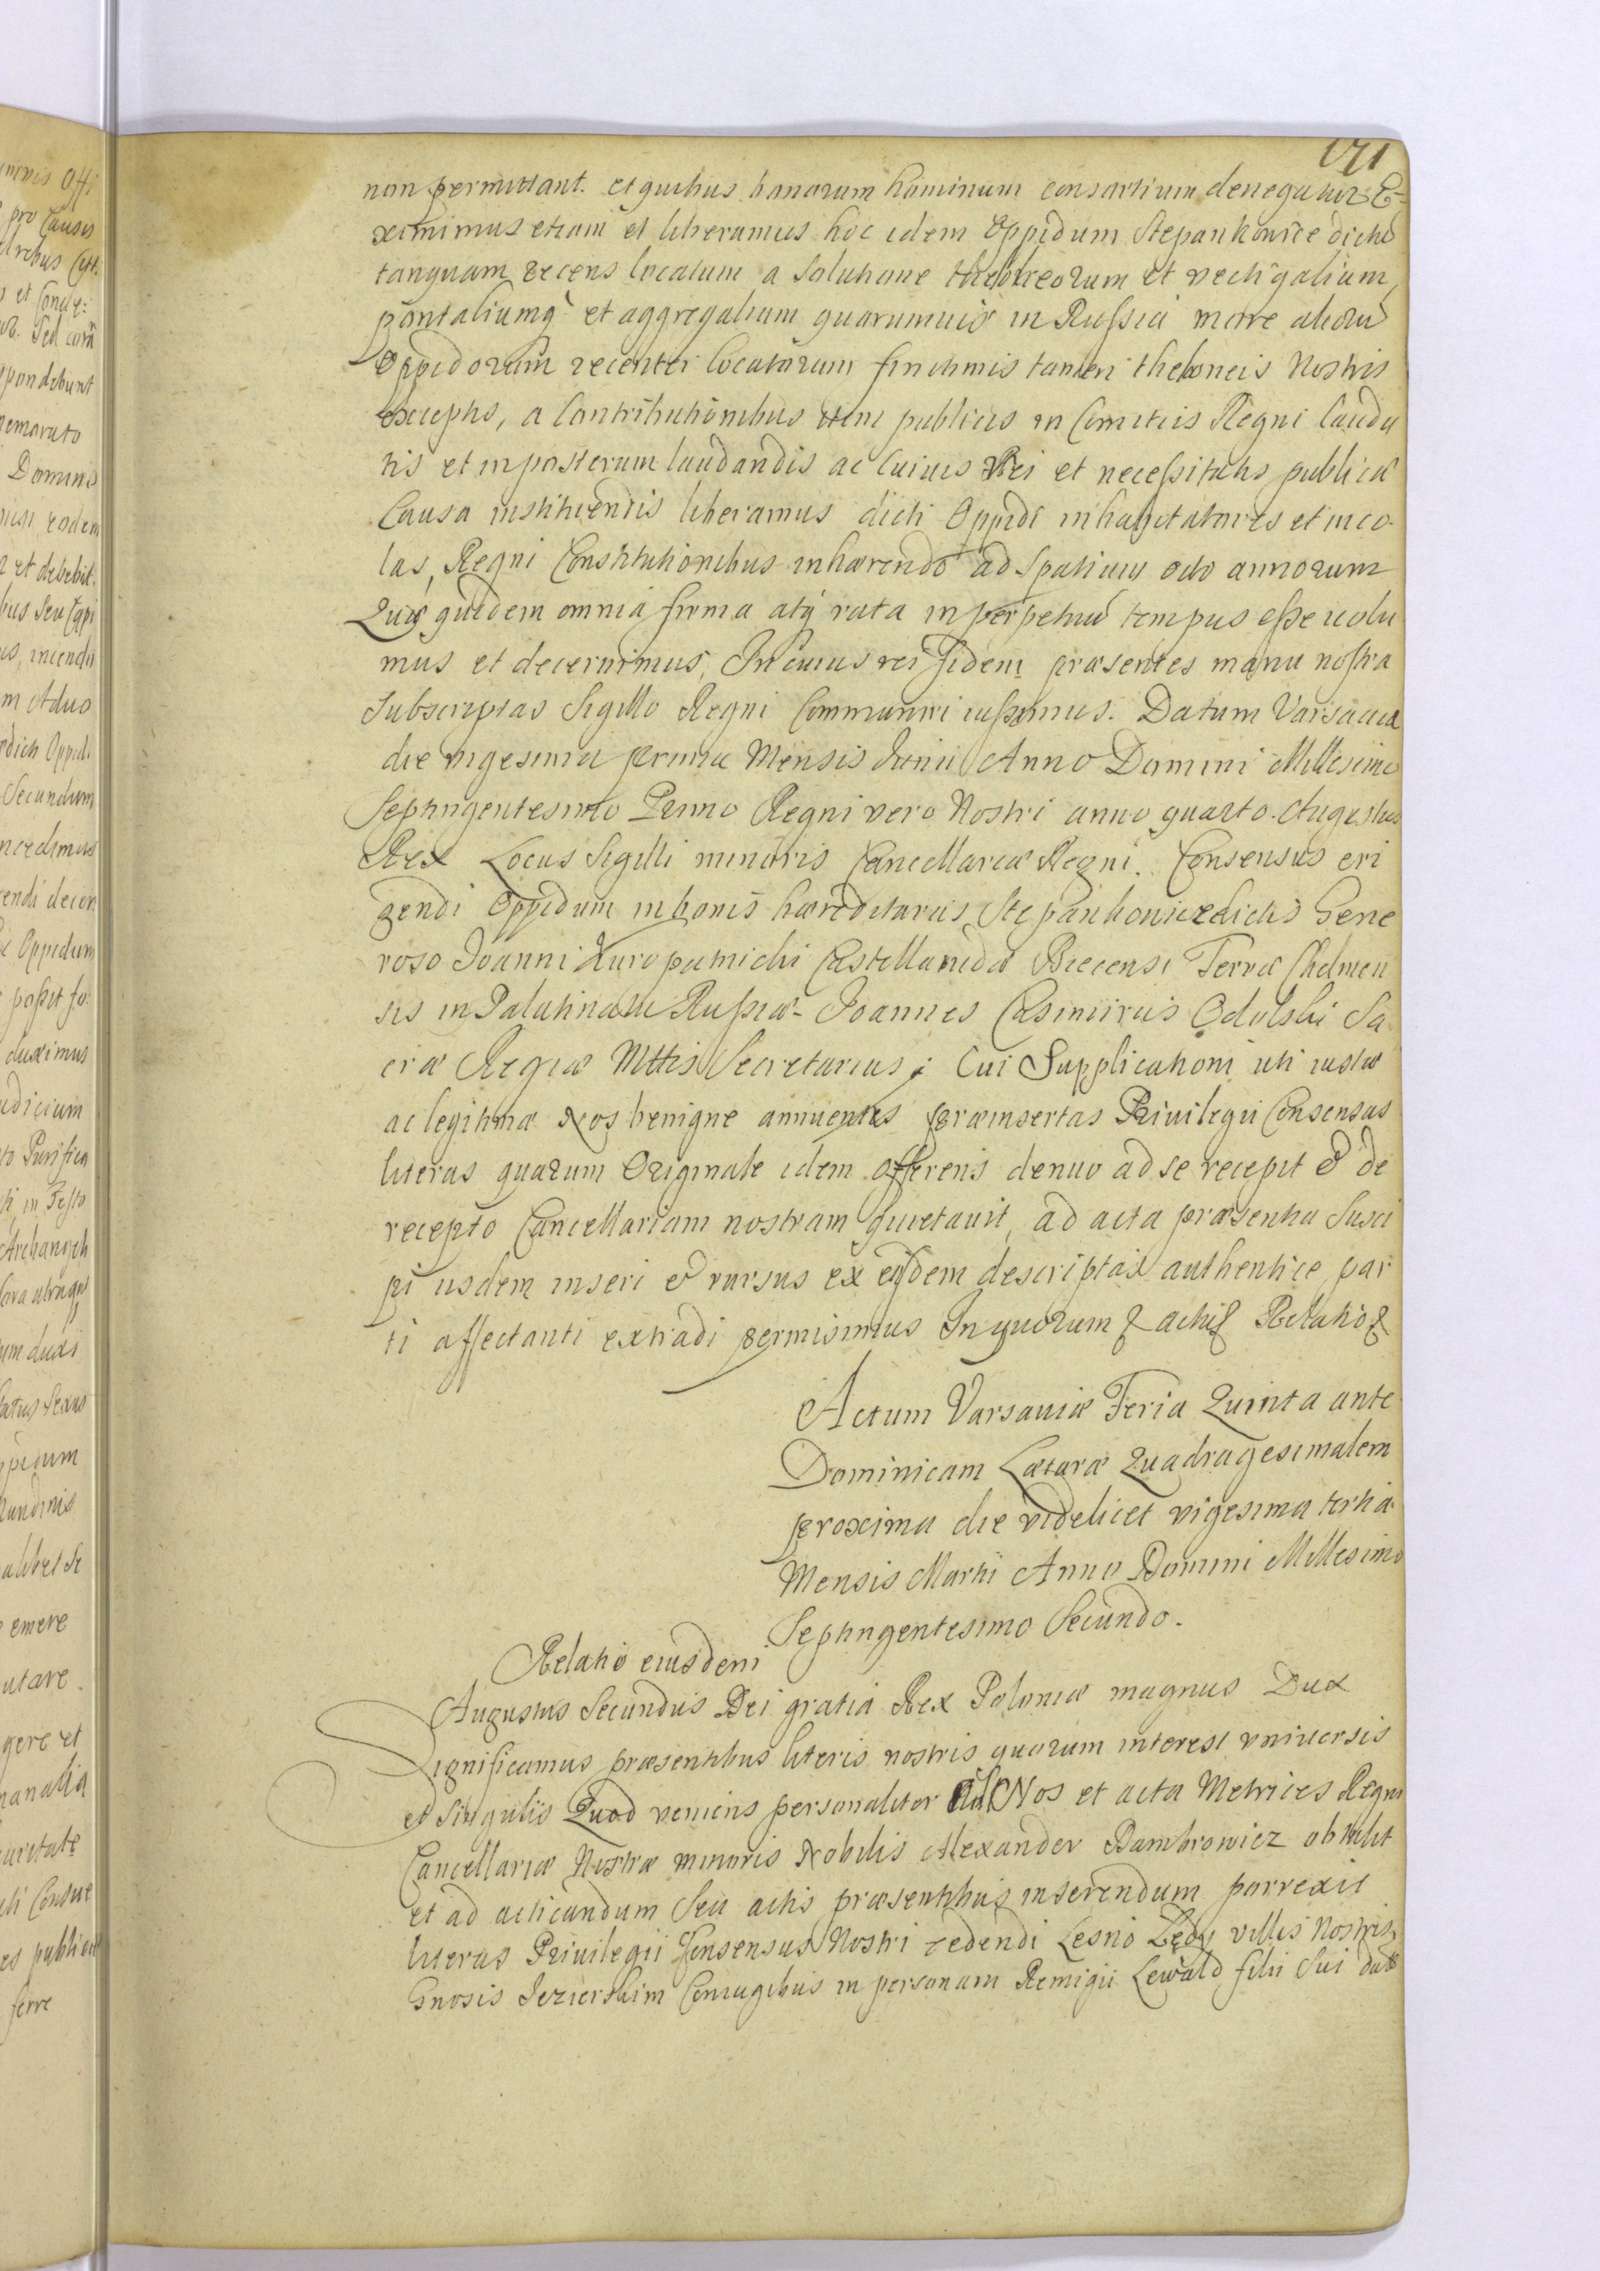 171
non permittant. et quibus bonorum hominum consortium denegatur. E-
ximimus etiam et liberamus hoc idem Oppidum Stepankowice dictu
tanquam recens locatum a solutione theloneorum et vectigalium
pontaliumq et aggregalium quarumuis in Russia more aliorũ
Oppidorum recenter locatorum finitimis tamen theloneis Nostris
exceptis, a Contributionibus item publicis in Comitiis Regni lauda
tis et inposterum laudandis ac cuiuis Rei et necessitatis publicæ
Causa instituendis liberamus dicti Oppidi inhabitatores et inco-
las, Regni Constitutionibus inhærendo ad spatium octo annorum
Quæ quidem omnia firma atq rata in perpetuũ tempus esse uolu
mus et decernimus, In cuius rei fidem præsentes manu nostra
Subscriptas Sigillo Regni Communiri iussimus. Datum Varsauiæ
die vigesima prima Mensis Junii Anno Domini Millesimo
Septingentesimo Primo Regni vero Nostri anno quarto. Augustus
Rex Locus Sigilli minoris Cancellariæ Regni. Consensus eri
gendi Oppidum in bonis hæreditariis Stepankowice dictis Gene
roso Joanni Kuropatnicki Castellanidæ Biecensi Terræ Chelmen
sis in Palatinatu Russiæ - Joannes Casimirus Odolski Sa
cræ Regiæ Mttis Secretarius; Cui Supplicationi uti iustæ
ac legitimæ Nos benigne annuentes præinsertas Priuilegii Consensus
literas quarum Originale idem offerens denuo ad se recepit & de
recepto Cancellariam nostram quietauit, ad acta præsentia Susci
pi iisdem inseri & rursus ex eisdem descriptas authentice par
ti affectanti extradi permisimus In quorum & actis & Relatio &
Actum Varsauiæ Feria Quinta ante
Dominicam Lætaræ Quadragesimalem
proxima die videlicet vigesima tertia
Mensis Martii Anno Domini Millesimo
Septingentesimo Secundo.
Relatio eiusdem
Augustus Secundus Dei gratia Rex Poloniæ magnus Dux
Significamus præsentibus literis nostris quorum interest vniuersis
et Singulis Quod veniens personaliter ad Nos et acta Metrices Regni
Cancellariæ Nostræ minoris Nobilis Alexander Dambrowicz obtulit
et ad acticandum seu actis præsentibus inserendum porrexit
literas Priuilegii Consensus Nostri cedendi Lesno Lędy villis Nostris
Gnosis Jezierskim Coniugibus in personam Remigii Lewald filii sui datas